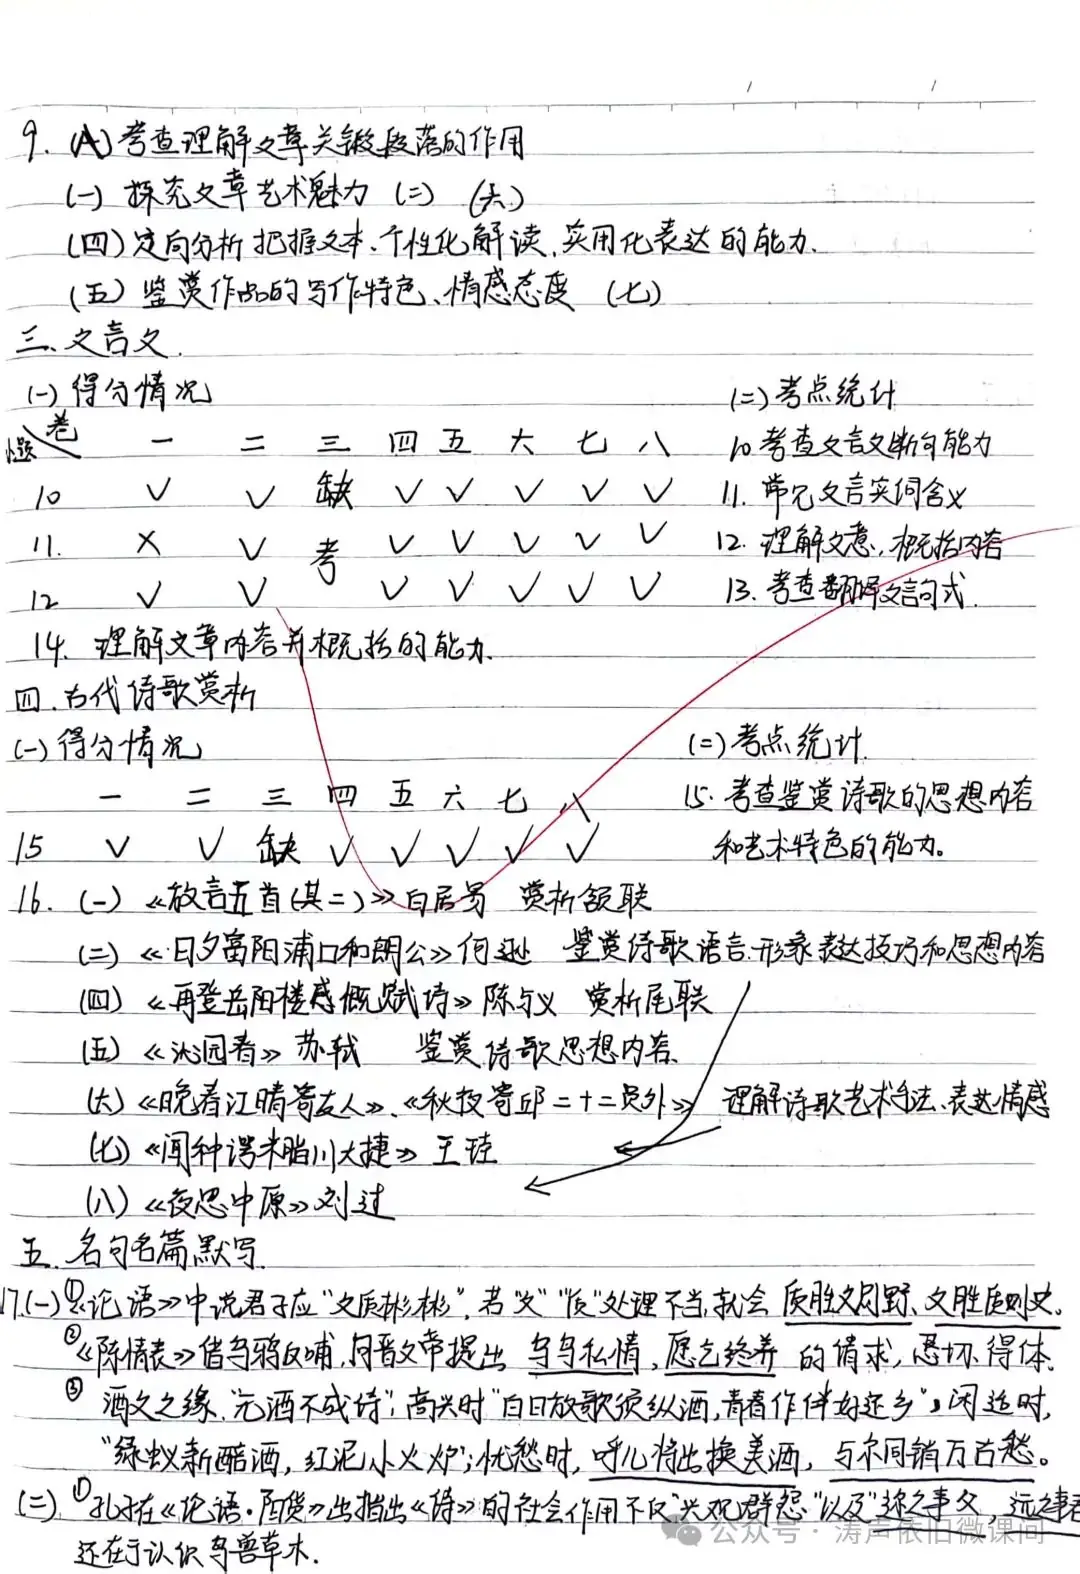 9. (八)考查理解文章关键段落的作用
(一) 探究文章艺术魅力 (二) (六)
(四)定向分析 把握文本、个性化解读、实用化表达的能力.
(五) 鉴赏作品的写作特色、情感态度 (七)
三、文言文.
(一)得分情况 (二)考点统计
题 卷 一 二 三 四 五 六 七 八 10考查文言文断句能力
10 ∨ ∨ 缺 ∨ ∨ ∨ ∨ ∨ 11. 常见文言实词含义
11. × ∨ 考 ∨ ∨ ∨ ∨ ∨ 12. 理解文意，概括内容
12 ∨ ∨ ∨ ∨ ∨ ∨ ∨ 13. 考查翻译文言句式.
14. 理解文章内容并概括的能力.
四.古代诗歌赏析
(一)得分情况 (二)考点统计.
一 二 三 四 五 六 七 八 15. 考查鉴赏诗歌的思想内容
15 ∨ ∨ 缺 ∨ ∨ ∨ ∨ ∨ 和艺术特色的能力。
16. (一) 《放言五首(其二)》白居易 赏析颔联
(二) 《日夕富阳浦口和朗公》何逊 鉴赏诗歌语言.形象表达技巧和思想内容
(四) 《再登岳阳楼感慨赋诗》陈与义 赏析尾联
(五) 《沁园春》苏轼 鉴赏诗歌思想内容.
(六)《晚春江晴寄友人》、《秋夜寄邱二十二员外》 理解诗歌艺术手法、表达情感
(七)《闻种谔米脂川大捷》王珪
(八)《夜思中原》刘过
五. 名句名篇默写.
17.(一)①《论语》中说君子应"文质彬彬"，若"文""质"处理不当，就会 质胜文则野、文胜质则史。
②《陈情表》借乌鸦反哺，向晋文帝提出 乌鸟私情，愿乞终养 的请求，恳切得体.
③ 酒文之缘，"无酒不成诗"；高兴时"白日放歌须纵酒，青春作伴好还乡"；闲适时，
"绿蚁新醅酒，红泥小火炉"；忧愁时，呼儿将出换美酒，与尔同销万古愁。
(二) ①孔子在《论语·阳货》出指出《诗》的社会作用不仅"兴观群怨"以及"迩之事父，远之事君
还在于认识鸟兽草木.
公众号·涛声依旧微课间